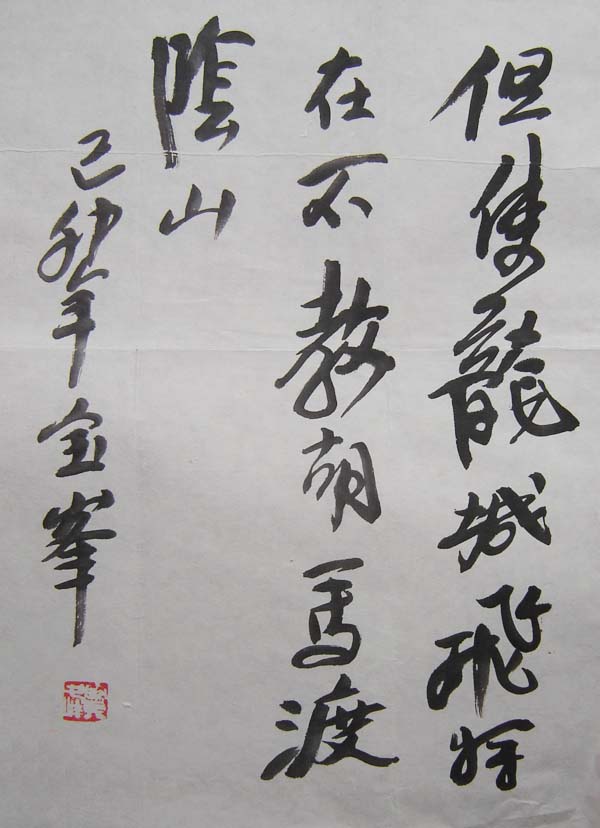 但使龍城飛將
在不教胡馬渡
陰山
己卯年宝峯